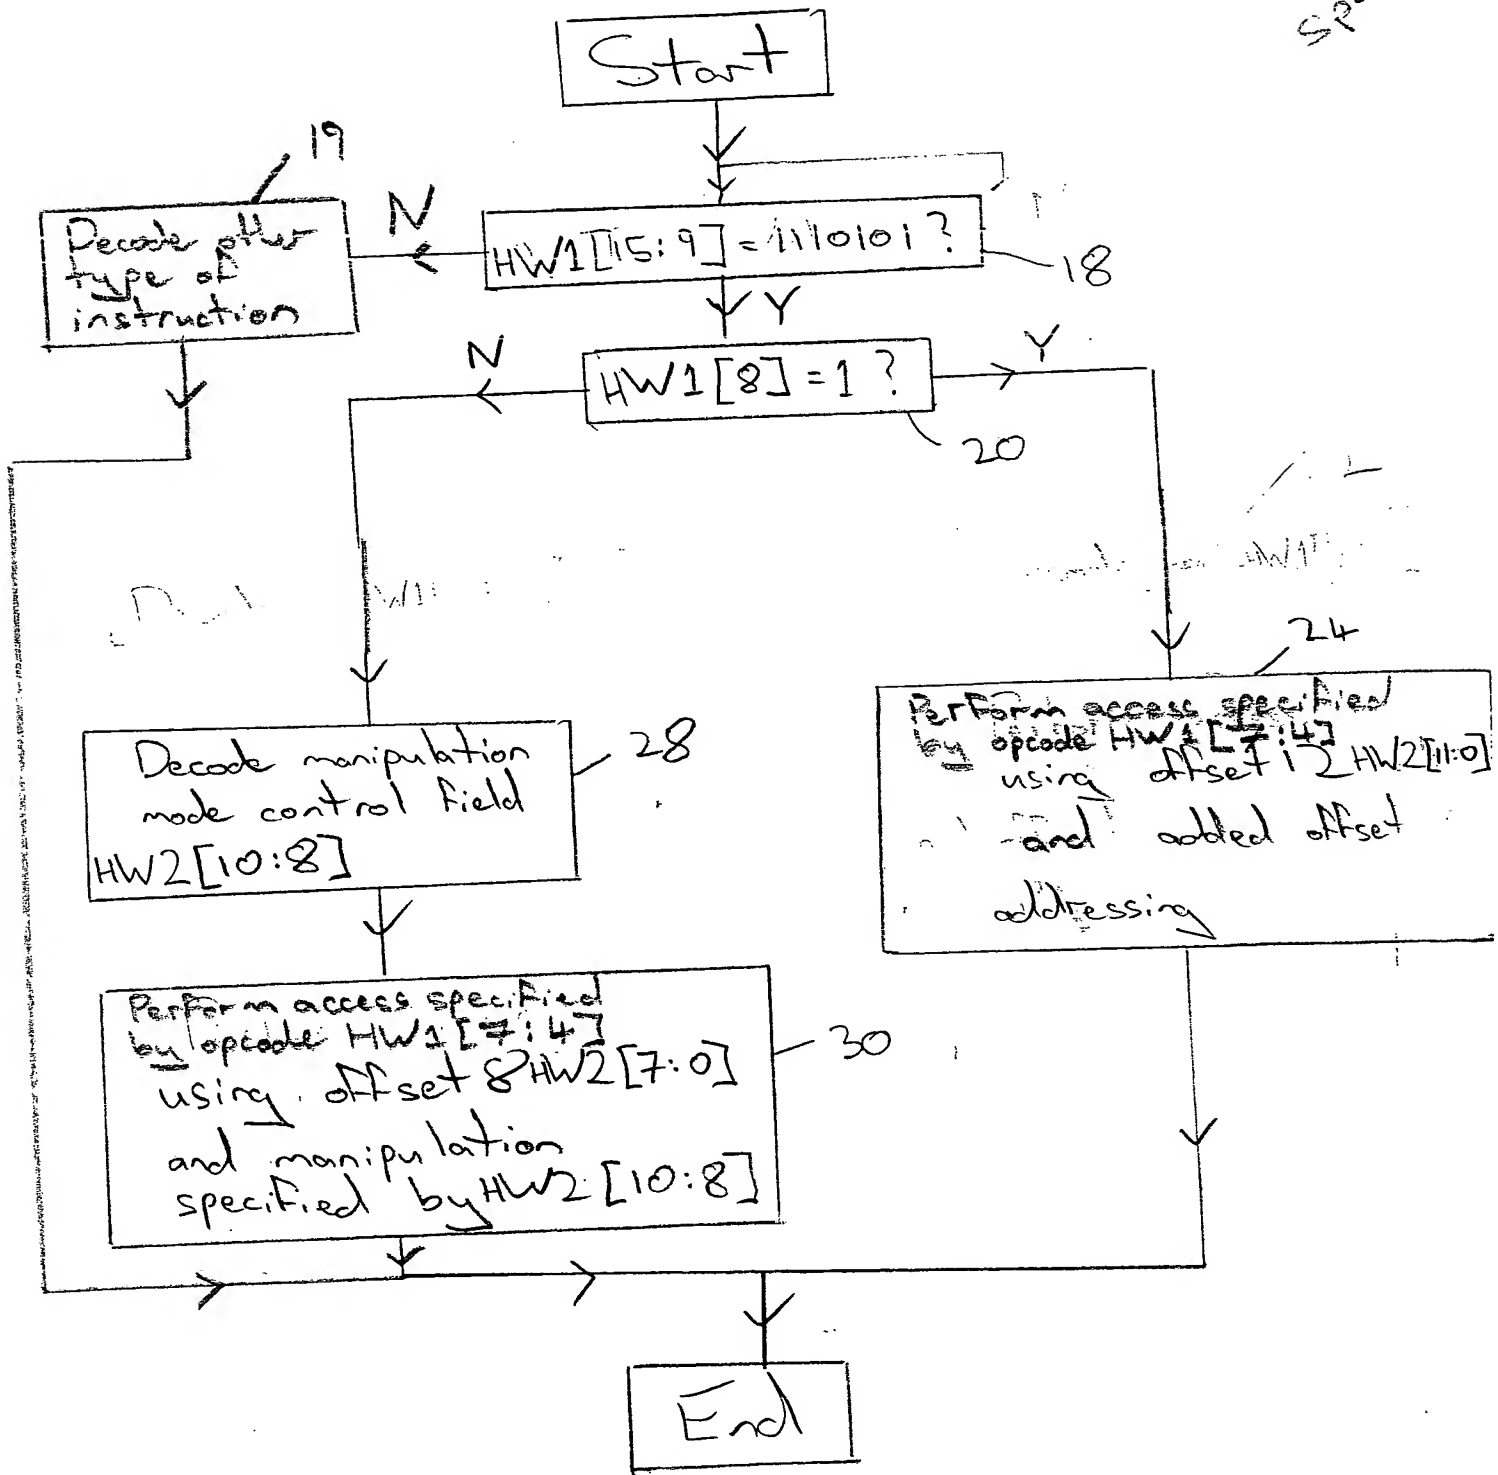 SP
Start
19
N
Decode other
type of
instruction
HW1[15:9] = 1110101 ?
18
Y
N
HW1[8] = 1 ?
Y
20
HW1
24
Decode manipulation
mode control field
HW2[10:8]
28
Perform access specified
by opcode HW1[7:4]
using offset 12 HW2[11:0]
and added offset
addressing
Perform access specified
by opcode HW1[7:4]
using offset 8 HW2[7:0]
and manipulation
specified by HW2 [10:8]
30
End